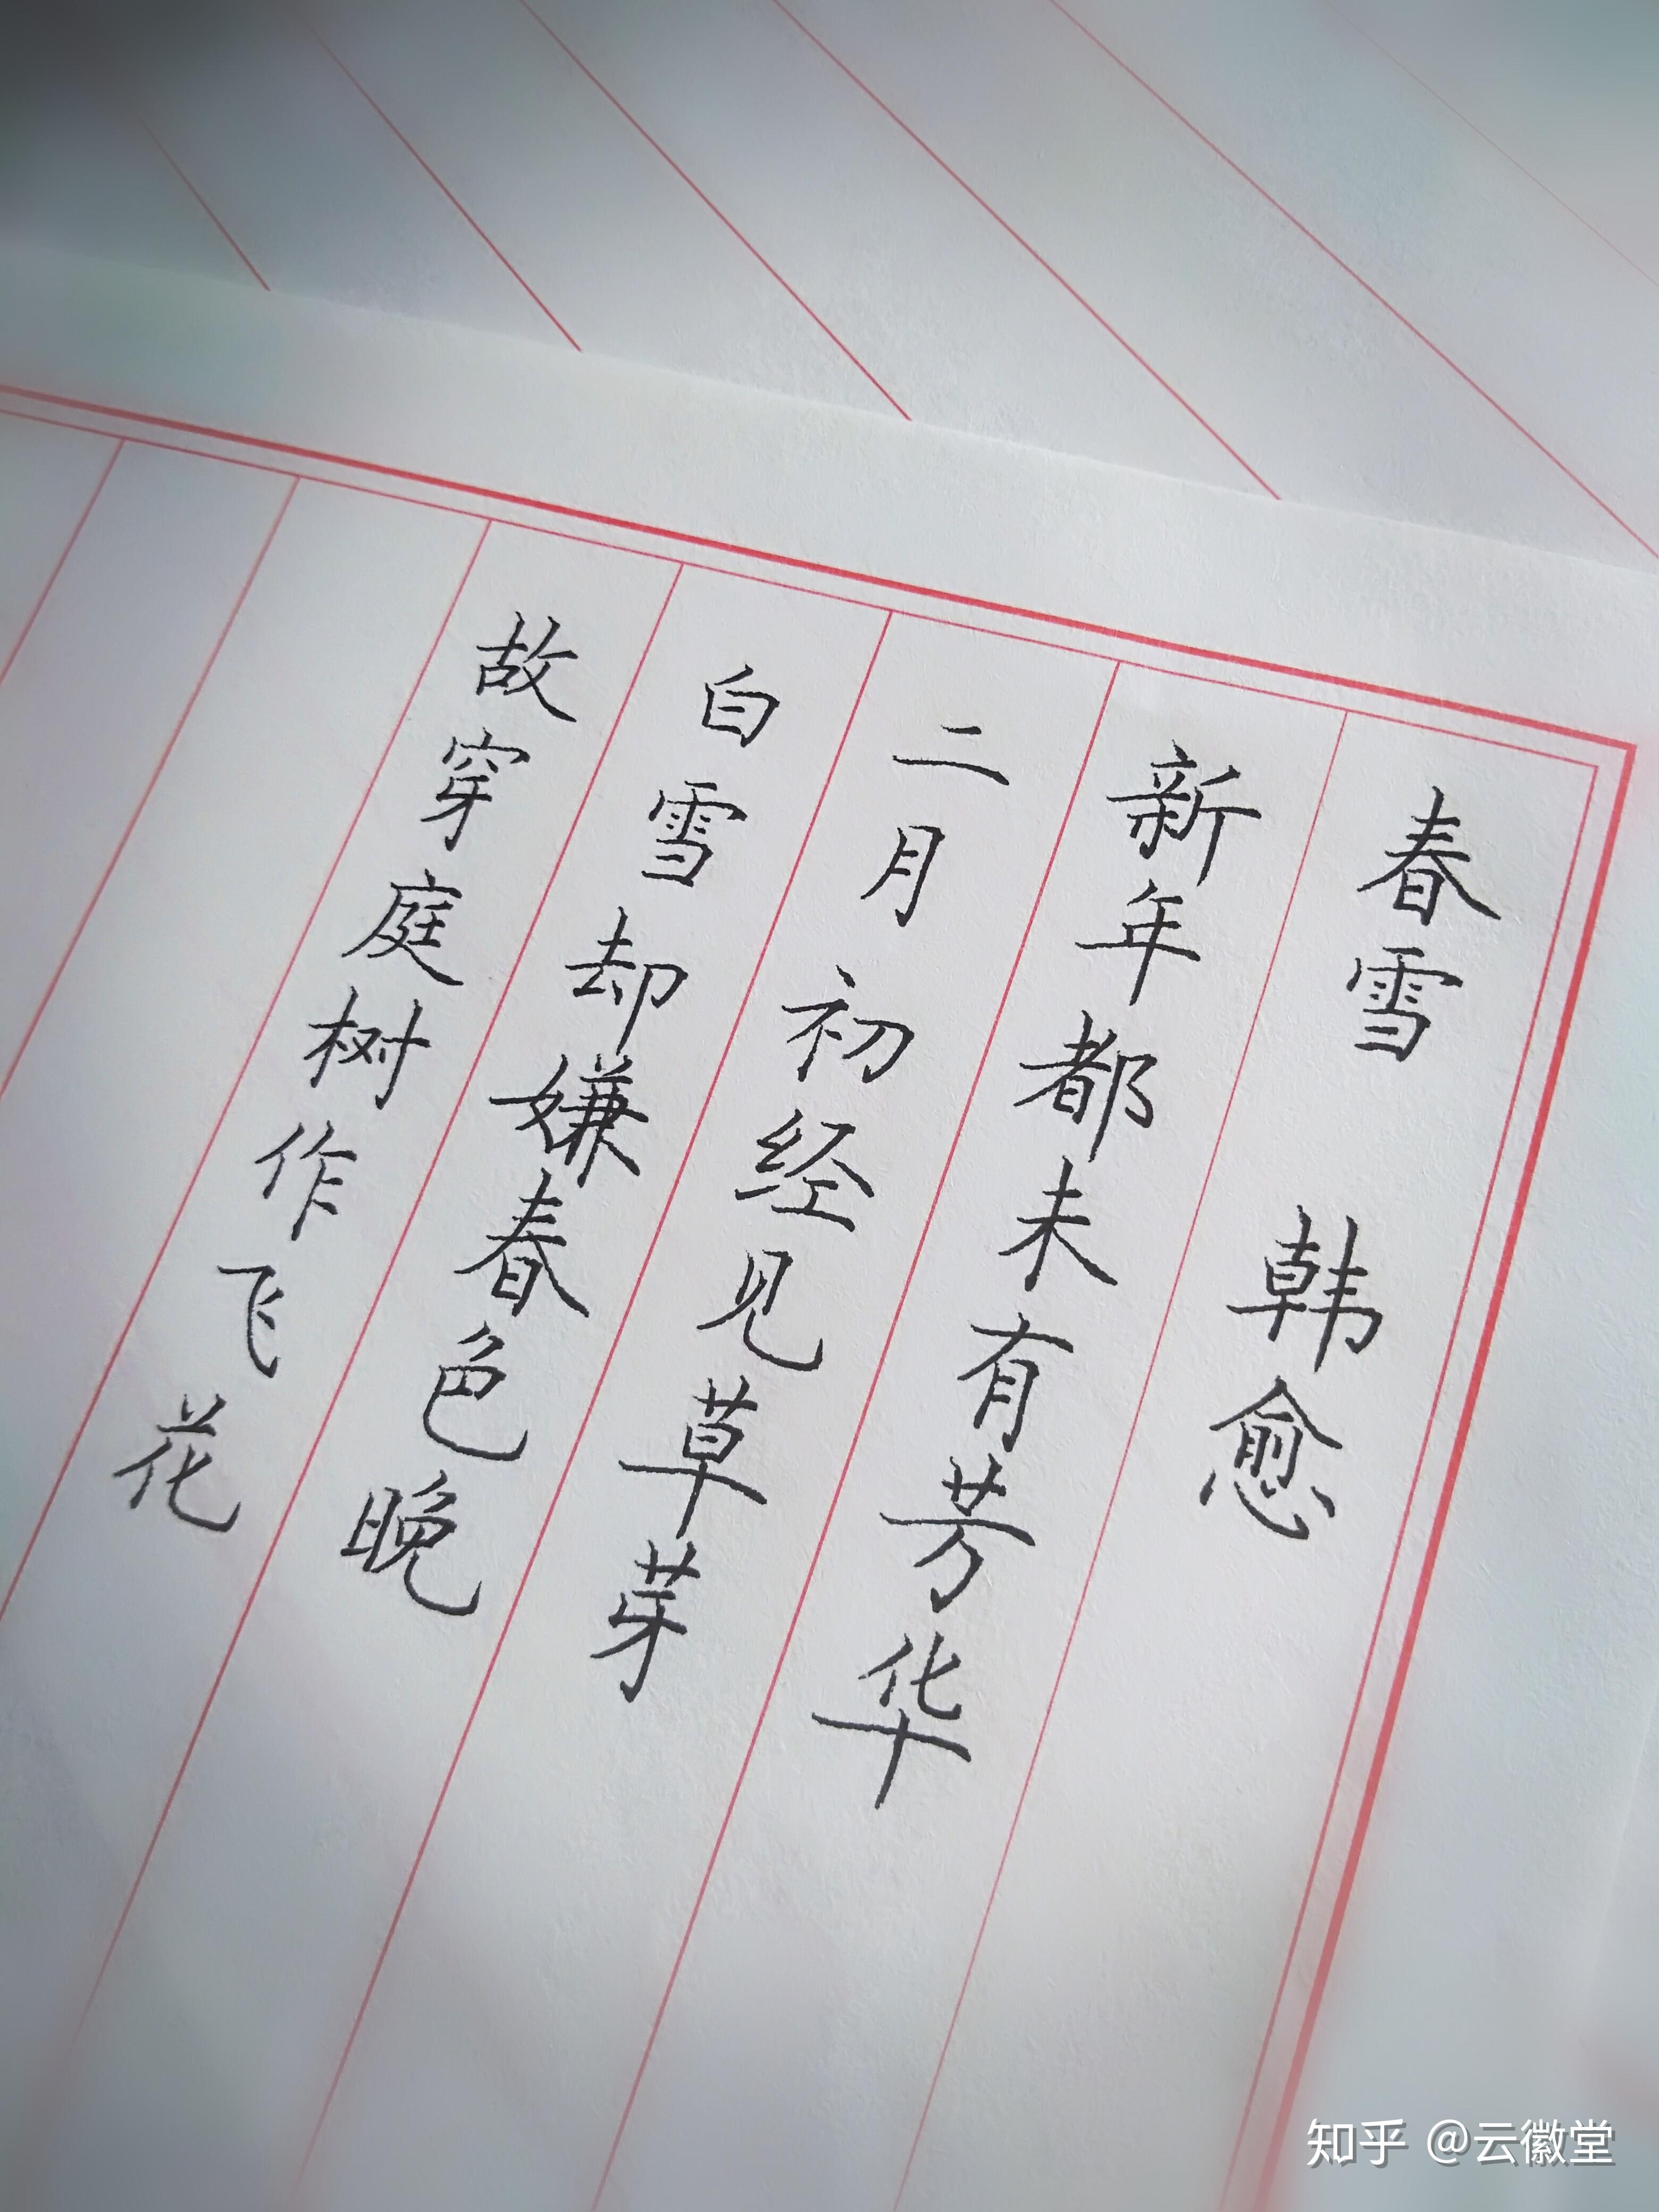 春雪 韩愈
新年都未有芳华
二月初经见草芽
白雪却嫌春色晚
故穿庭树作飞花
知乎 @云徽堂